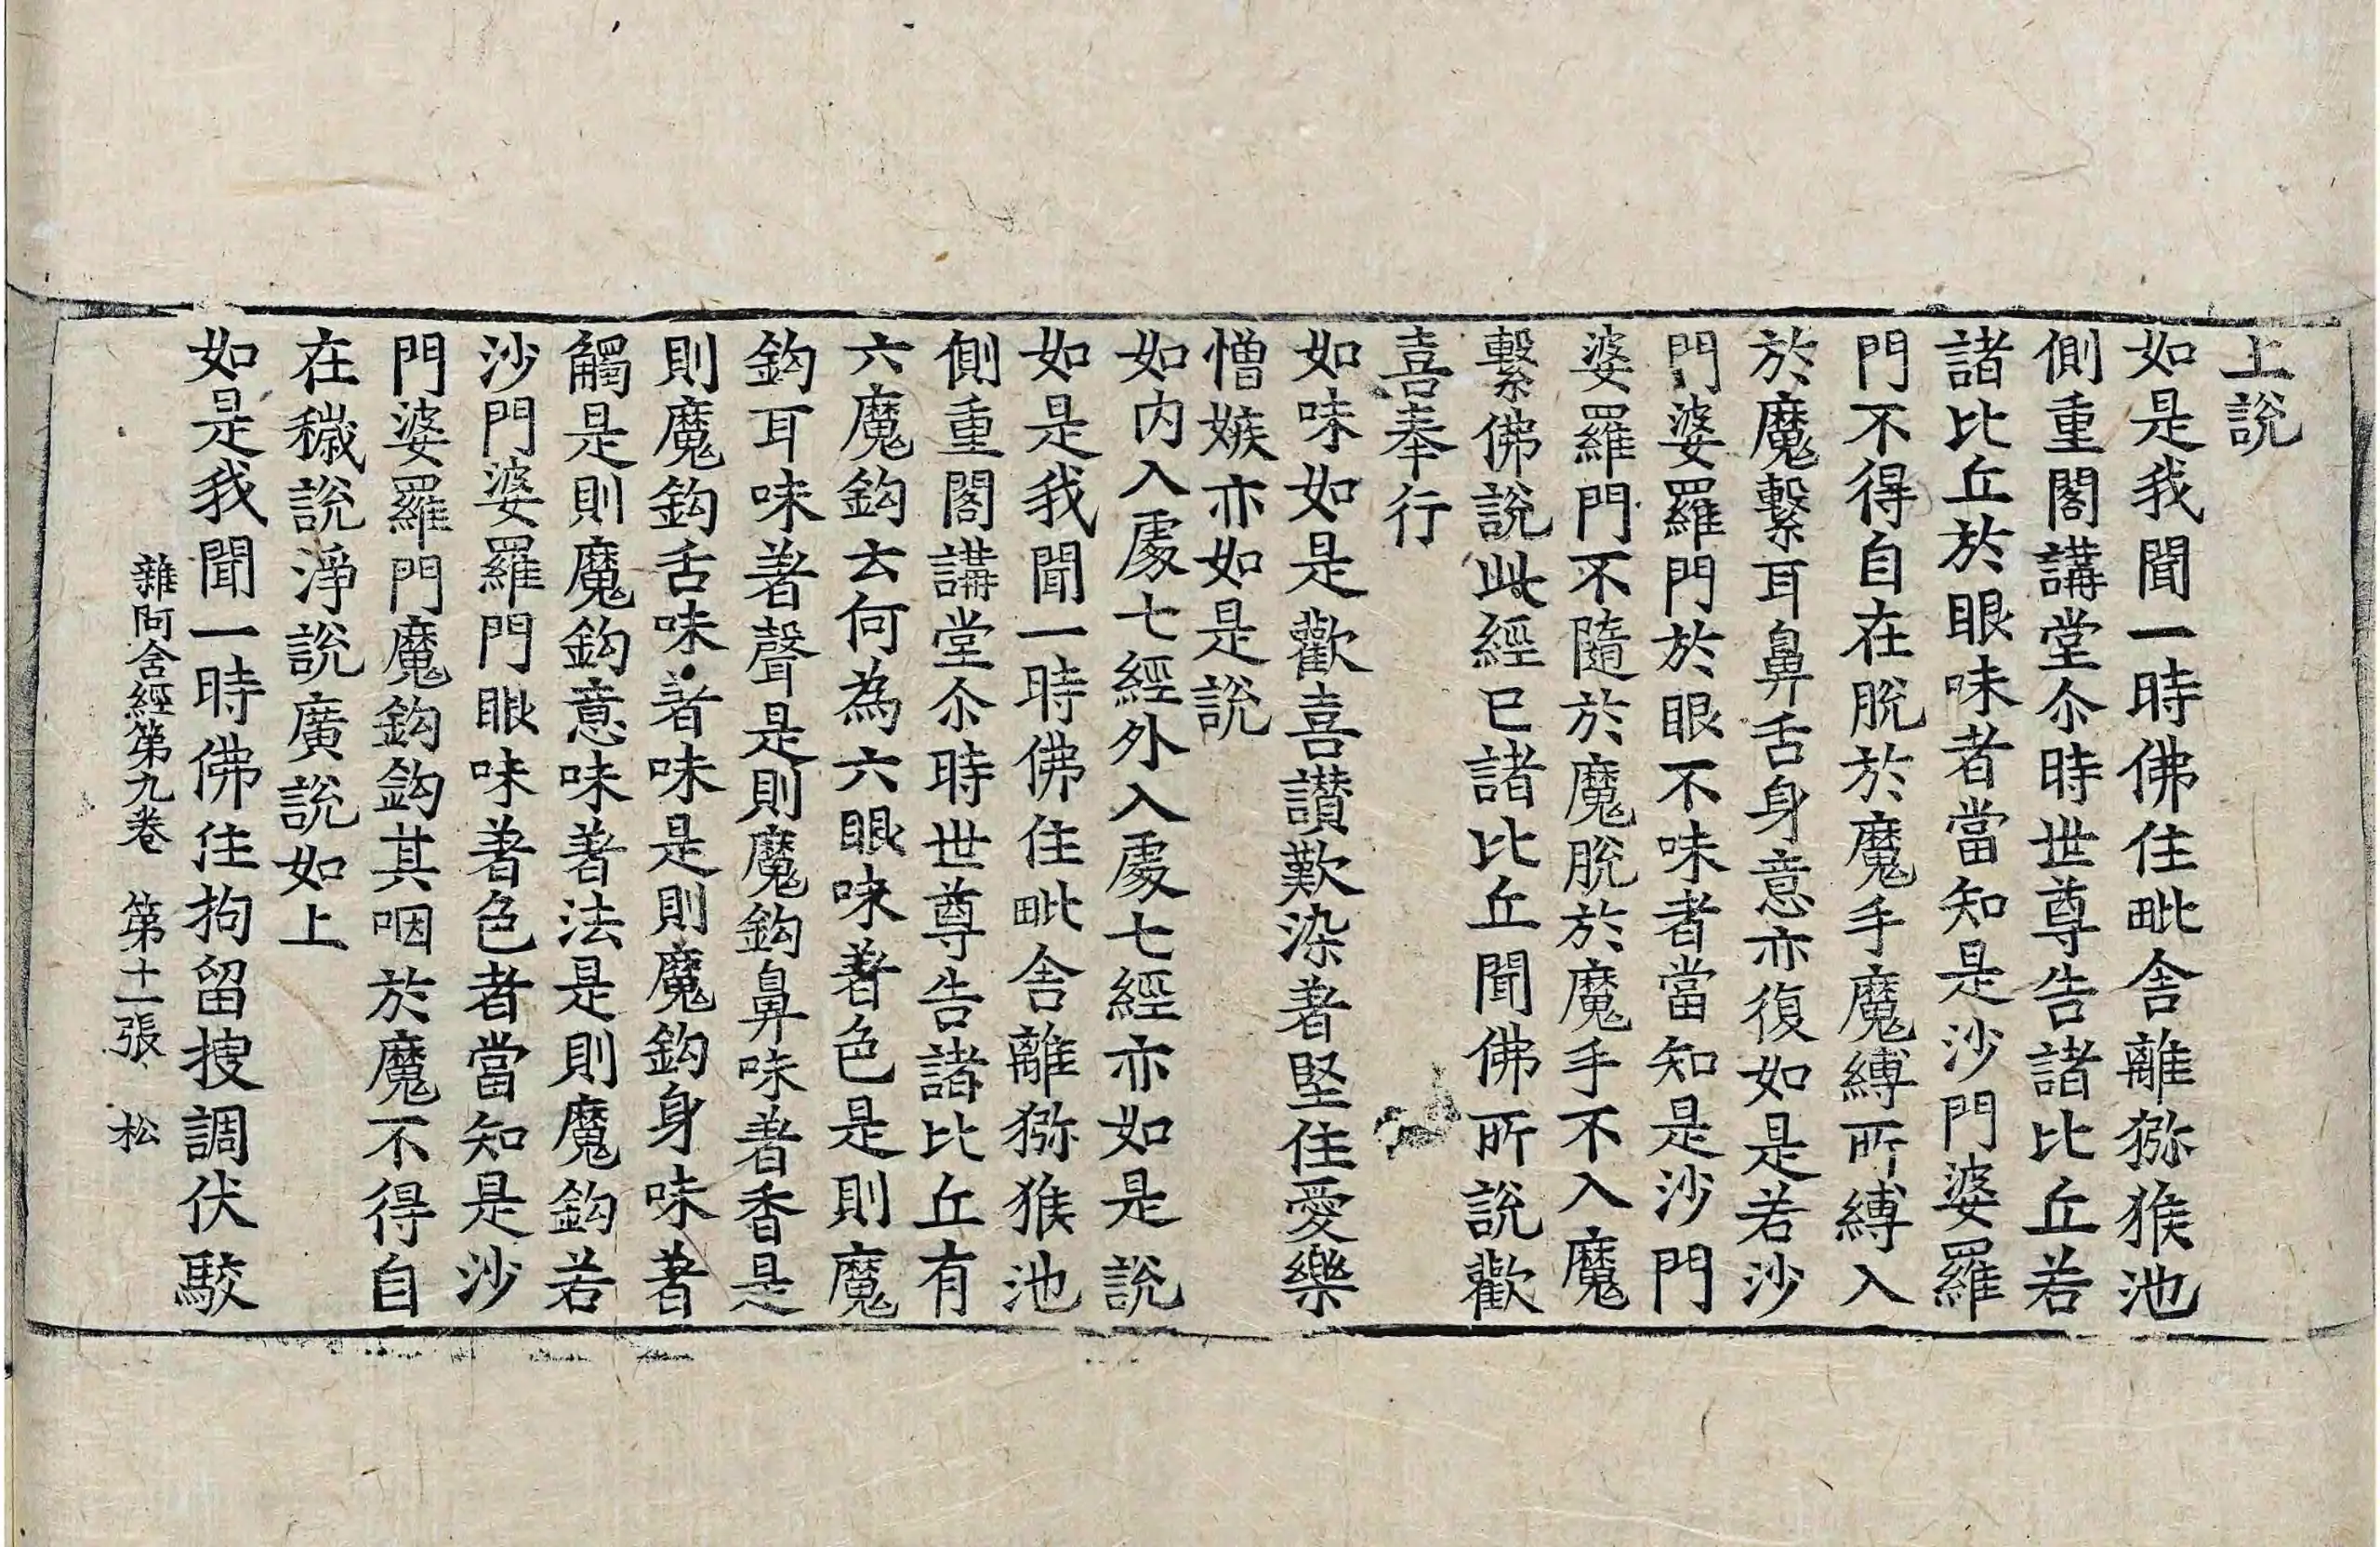 上說
如是我聞一時佛住毗舍離獼猴池
側重閣講堂尒時世尊告諸比丘若
諸比丘於眼味者當知是沙門婆羅
門不得自在脫於魔手魔縛所縛入
於魔繫耳鼻舌身意亦復如是若沙
門婆羅門於眼不味者當知是沙門
婆羅門不隨於魔脫於魔手不入魔
繫佛說此經已諸比丘聞佛所說歡
喜奉行
如味如是歡喜讃歎染著堅住愛樂
憎嫉亦如是說
如內入處七經外入處七經亦如是說
如是我聞一時佛住毗舍離獼猴池
側重閣講堂尒時世尊告諸比丘有
六魔鈎云何為六眼味著色是則魔
鈎耳味著聲是則魔鈎鼻味著香是
則魔鈎舌味著味是則魔鈎身味著
觸是則魔鈎意味著法是則魔鈎若
沙門婆羅門眼味著色者當知是沙
門婆羅門魔鈎鈎其咽於魔不得自
在穢說淨說廣說如上
如是我聞一時佛住拘留搜調伏駮
雜阿含經第九卷 第十二張 松